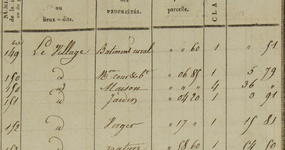 ou
lieux-dits.
PROPRIÉTÉS.
parcelle.
149 Le Village Batiment rural " " 60 1 " 51
150 d cour & 06 85 1 5 79
150 d Maison " " 4 36 "
151 d Jardin " 04 20 1 3 91
152 d Verger " 17 " 1 15 81
d 58 60 1 54 50